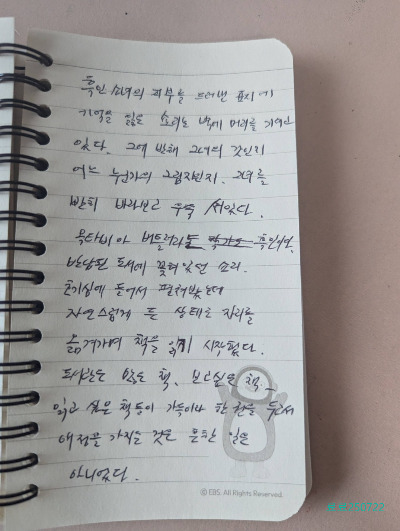 흑인 소녀의 피부를 드러낸 표지에
기억을 잃은 소리는 벽에 머리를 기대고
있다. 그에 반해 그녀의 것인지
어느 누군가의 그림자인지. 그녀를
빤히 바라보고 우뚝 서있다.
옥타비아 버틀러
반납된 도서에 꽂혀 있던 소리.
호기심에 들어서 펼쳐봤는데
자연스럽게 든 상태로 자리를
옮겨가며 책을 읽기 시작했다.
도서관은 많은 책, 보고싶은 책
읽고 싶은 책들이 가득이나 한 권을 두고서
애정을 가지는 것은 흔한 일은
아니었다.
© EBS. All Rights Reserved.